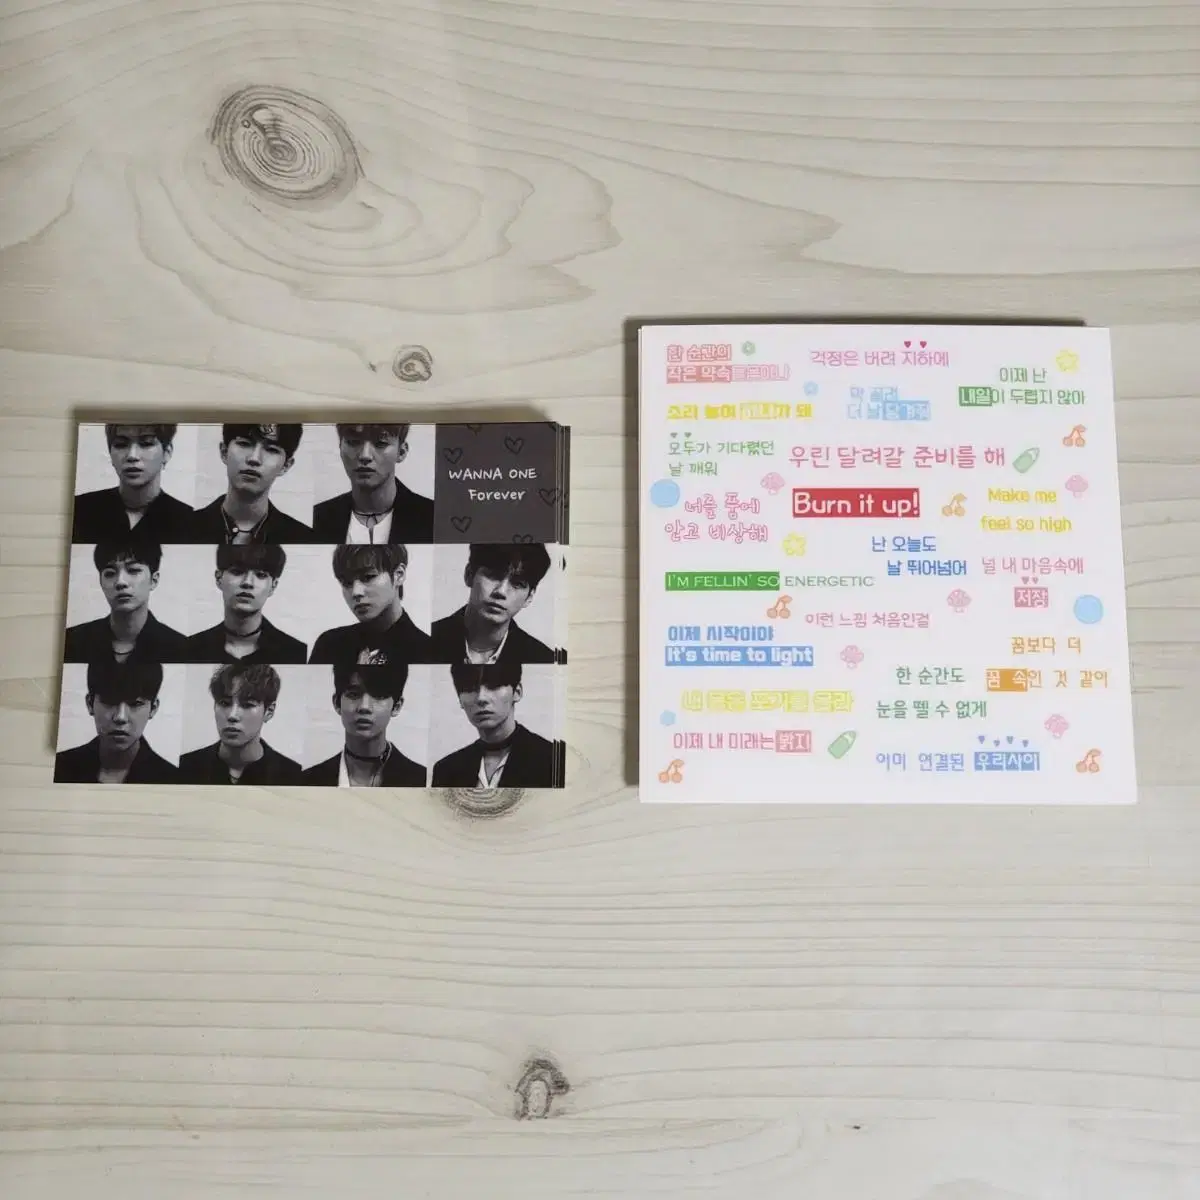 WANNA ONE
Forever
한 순간의
작은 약속들뿐이니
걱정은 버려 지하에
이제 난
내일이 두렵지 않아
소리 높여 하나가 돼
막 끌려
더 날 당겨줘
모두가 기다렸던
날 깨워
우린 달려갈 준비를 해
너를 품에
안고 비상해
Burn it up!
Make me
feel so high
난 오늘도
날 뛰어넘어
널 내 마음속에
저장
I'M FELLIN' SO ENERGETIC
이런 느낌 처음인걸
이제 시작이야
It's time to light
꿈보다 더
꿈 속인 것 같아
한 순간도
눈을 뗄 수 없게
이제 내 미래는 밝지
이미 연결된 우리사이